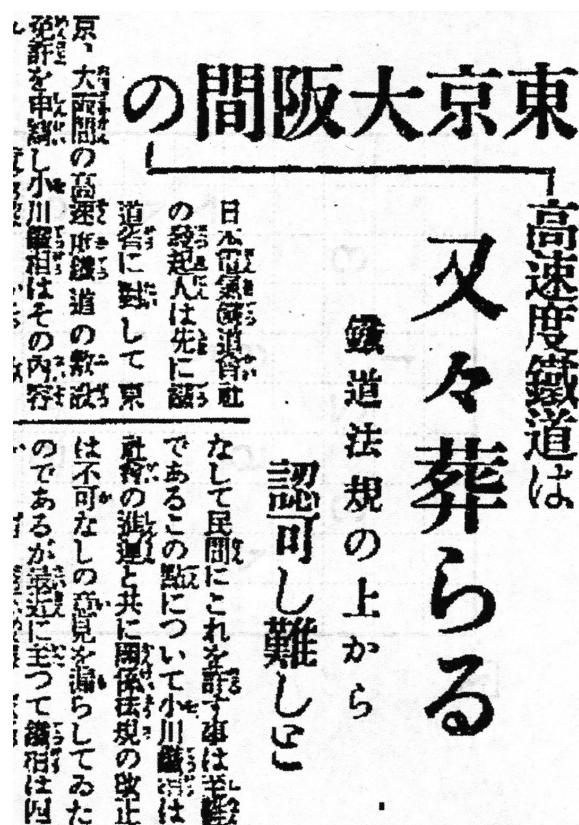 東京大阪間の
高速度鐵道は
又々葬らる
鐵道法規の上から
認可し難しと
日本電氣鐵道會社
の發起人は先に鐵
道省に對して東
京、大阪間の高速度鐵道の敷設
免許を申請し小川鐵相はその内容
なして民間にこれを許す事は至難
であるこの點について小川鐵相は
社會の進運と共に關係法規の改正
は不可なしの意見を漏らしてゐた
のであるが最近に至つて鐵相は四